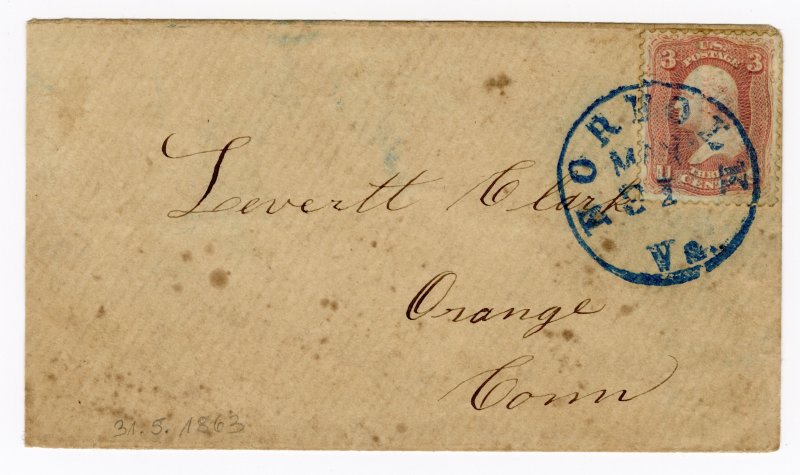 3 U.S. 3
POSTAGE
THREE
U CENT
NORFOLK
MAY
31
Va.
Levertt Clark
Orange
Conn
31.5.1863